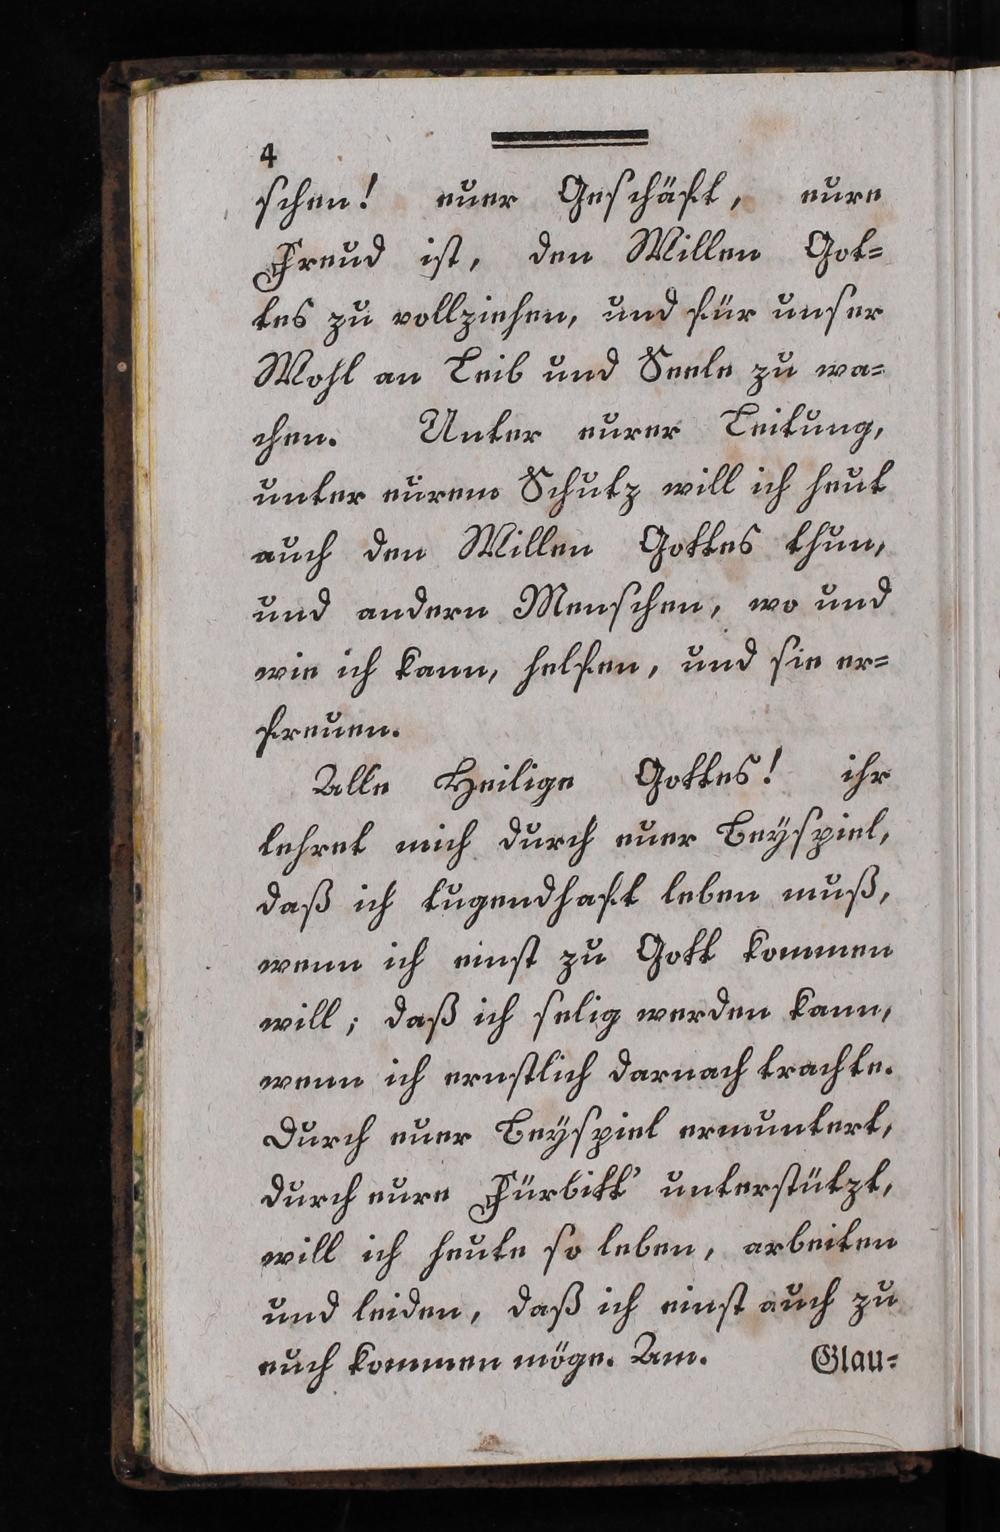 4
schen! euer Geschäft, eure
Freud ist, den Willen Got=
tes zu vollziehen, und für unser
Wohl an Leib und Seele zu wa=
chen. Unter eurer Leitung,
unter eurem Schutz will ich heut
auch den Willen Gottes thun,
und andern Menschen, wo und
wie ich kann, helfen, und sie er=
freuen.
Alle Heilige Gottes! ihr
lehret mich durch euer Beyspiel,
daß ich tugendhaft leben muß,
wenn ich einst zu Gott kommen
will; daß ich selig werden kann,
wenn ich ernstlich darnach trachte.
Durch euer Beyspiel ermuntert,
durch eure Fürbitt' unterstützt,
will ich heute so leben, arbeiten
und leiden, daß ich einst auch zu
euch kommen möge. Am. Glau=